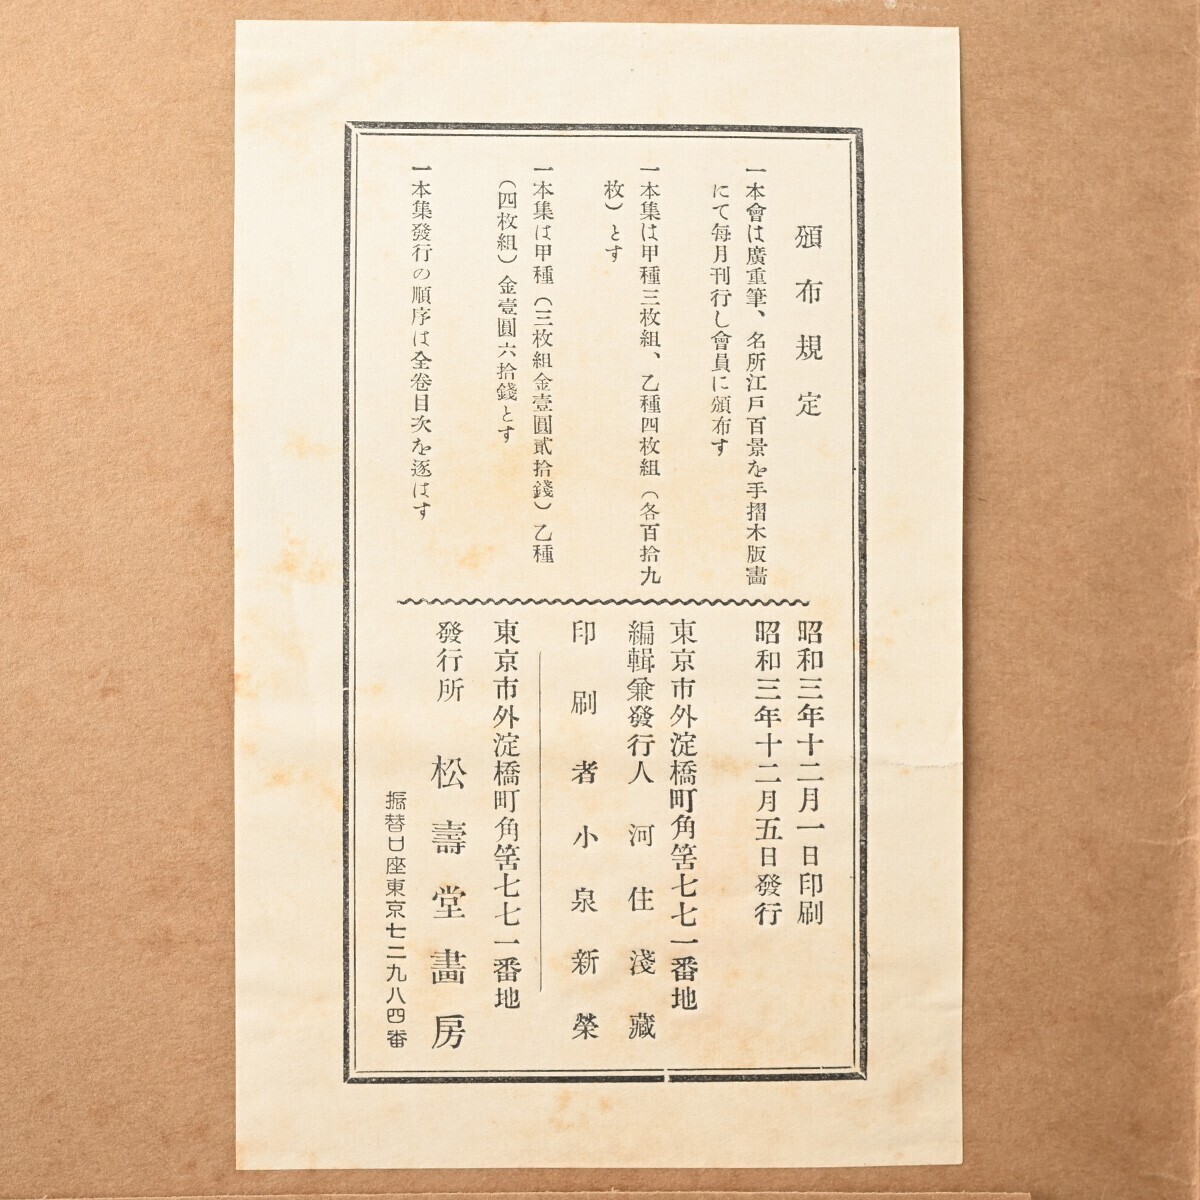 頒布規定
一本會は廣重筆、名所江戸百景を手摺木版畵
にて每月刊行し會員に頒布す
一本集は甲種三枚組、乙種四枚組（各百拾九
枚）とす
一本集は甲種（三枚組金壹圓貳拾錢）乙種
（四枚組）金壹圓六拾錢とす
一本集發行の順序は全卷目次を逐はす
昭和三年十二月一日印刷
昭和三年十二月五日發行
東京市外淀橋町角筈七七一番地
編輯兼發行人 河住淺藏
印刷者 小泉新榮
東京市外淀橋町角筈七七一番地
發行所 松壽堂畵房
振替口座東京七二九八四番